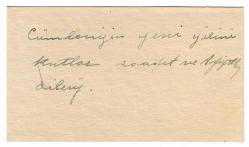 Cümlenizin yeni yılını
kutlar saadet ve
dileriz.